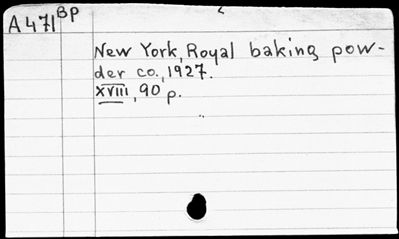 A471BP
New York, Royal baking pow-
der co., 1927.
XVIII, 90 p.